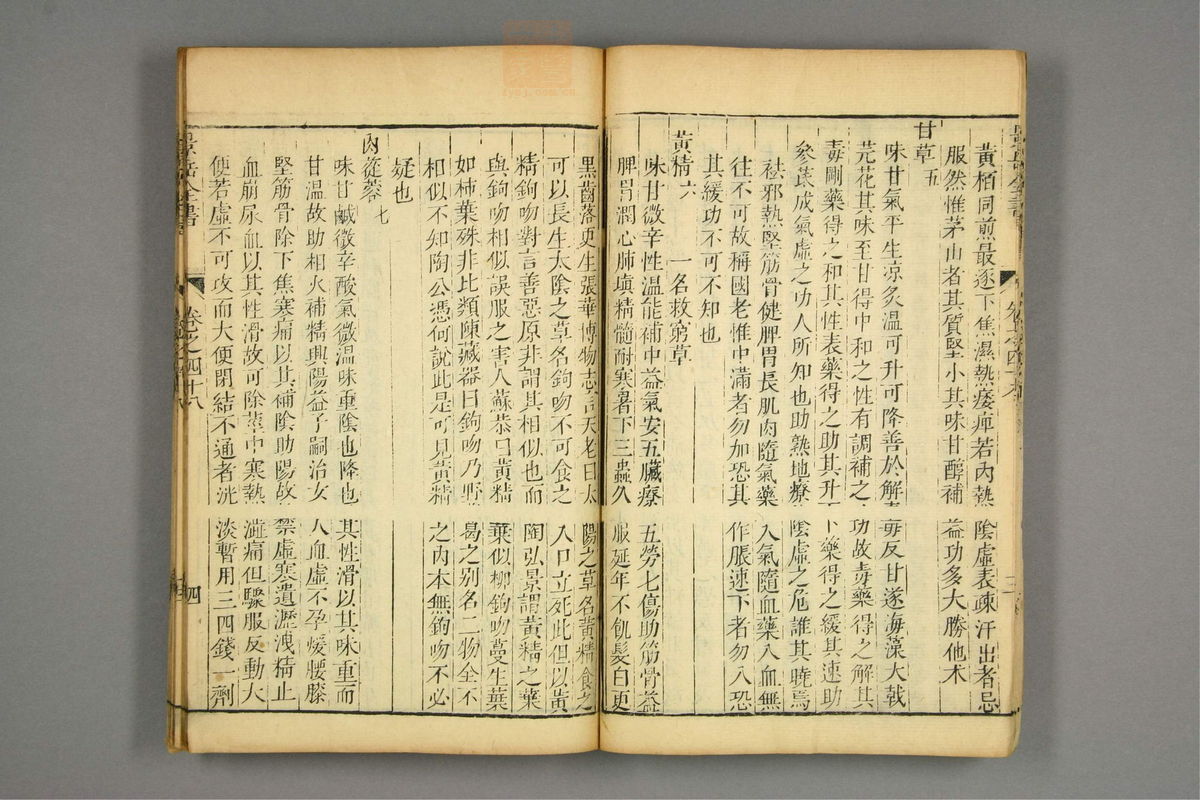 黃栢同煎最逐下焦濕熱痿痺若內熱陰虛表疎汗出者忌
服然惟茅山者其質堅小其味甘醇補益功多大勝他术
甘草五
味甘氣平生凉炙溫可升可降善於解毒反甘遂海藻大戟
芫花其味至甘得中和之性有調補之功故毒藥得之解其
毒剛藥得之和其性表藥得之助其升下藥得之緩其速助
參芪成氣虛之功人所知也助熟地療陰虛之危誰其曉焉
祛邪熱堅筋骨健脾胃長肌肉隨氣藥入氣隨血藥入血無
往不可故稱國老惟中滿者勿加恐其作脹速下者勿入恐
其緩功不可不知也
黃精六 一名救窮草
味甘微辛性溫能補中益氣安五臟療五勞七傷助筋骨益
脾胃潤心肺塡精髓耐寒暑下三蟲久服延年不飢髮白更
黑齒落更生張華博物志言天老曰太陽之草名黃精食之
可以長生太陰之草名鉤吻不可食之入口立死此但以黃
精鉤吻對言善惡原非謂其相似也而陶弘景謂黃精之葉
與鉤吻相似誤服之害人蘇恭曰黃精葉似柳鉤吻蔓生葉
如柿葉殊非比類陳藏器曰鉤吻乃野葛之別名二物全不
相似不知陶公憑何說此是可見黃精之內本無鉤吻不必
疑也
肉蓯蓉七
味甘鹹微辛酸氣微溫味重陰也降也其性滑以其味重而
甘溫故助相火補精興陽益子嗣治女人血虛不孕煖腰膝
堅筋骨除下焦寒痛以其補陰助陽故禁虛寒遺瀝洩精止
血崩尿血以其性滑故可除莖中寒熱澁痛但驟服反動大
便若虛不可攻而大便閉結不通者洗淡暫用三四錢一劑
景岳全書
卷之四十八
四